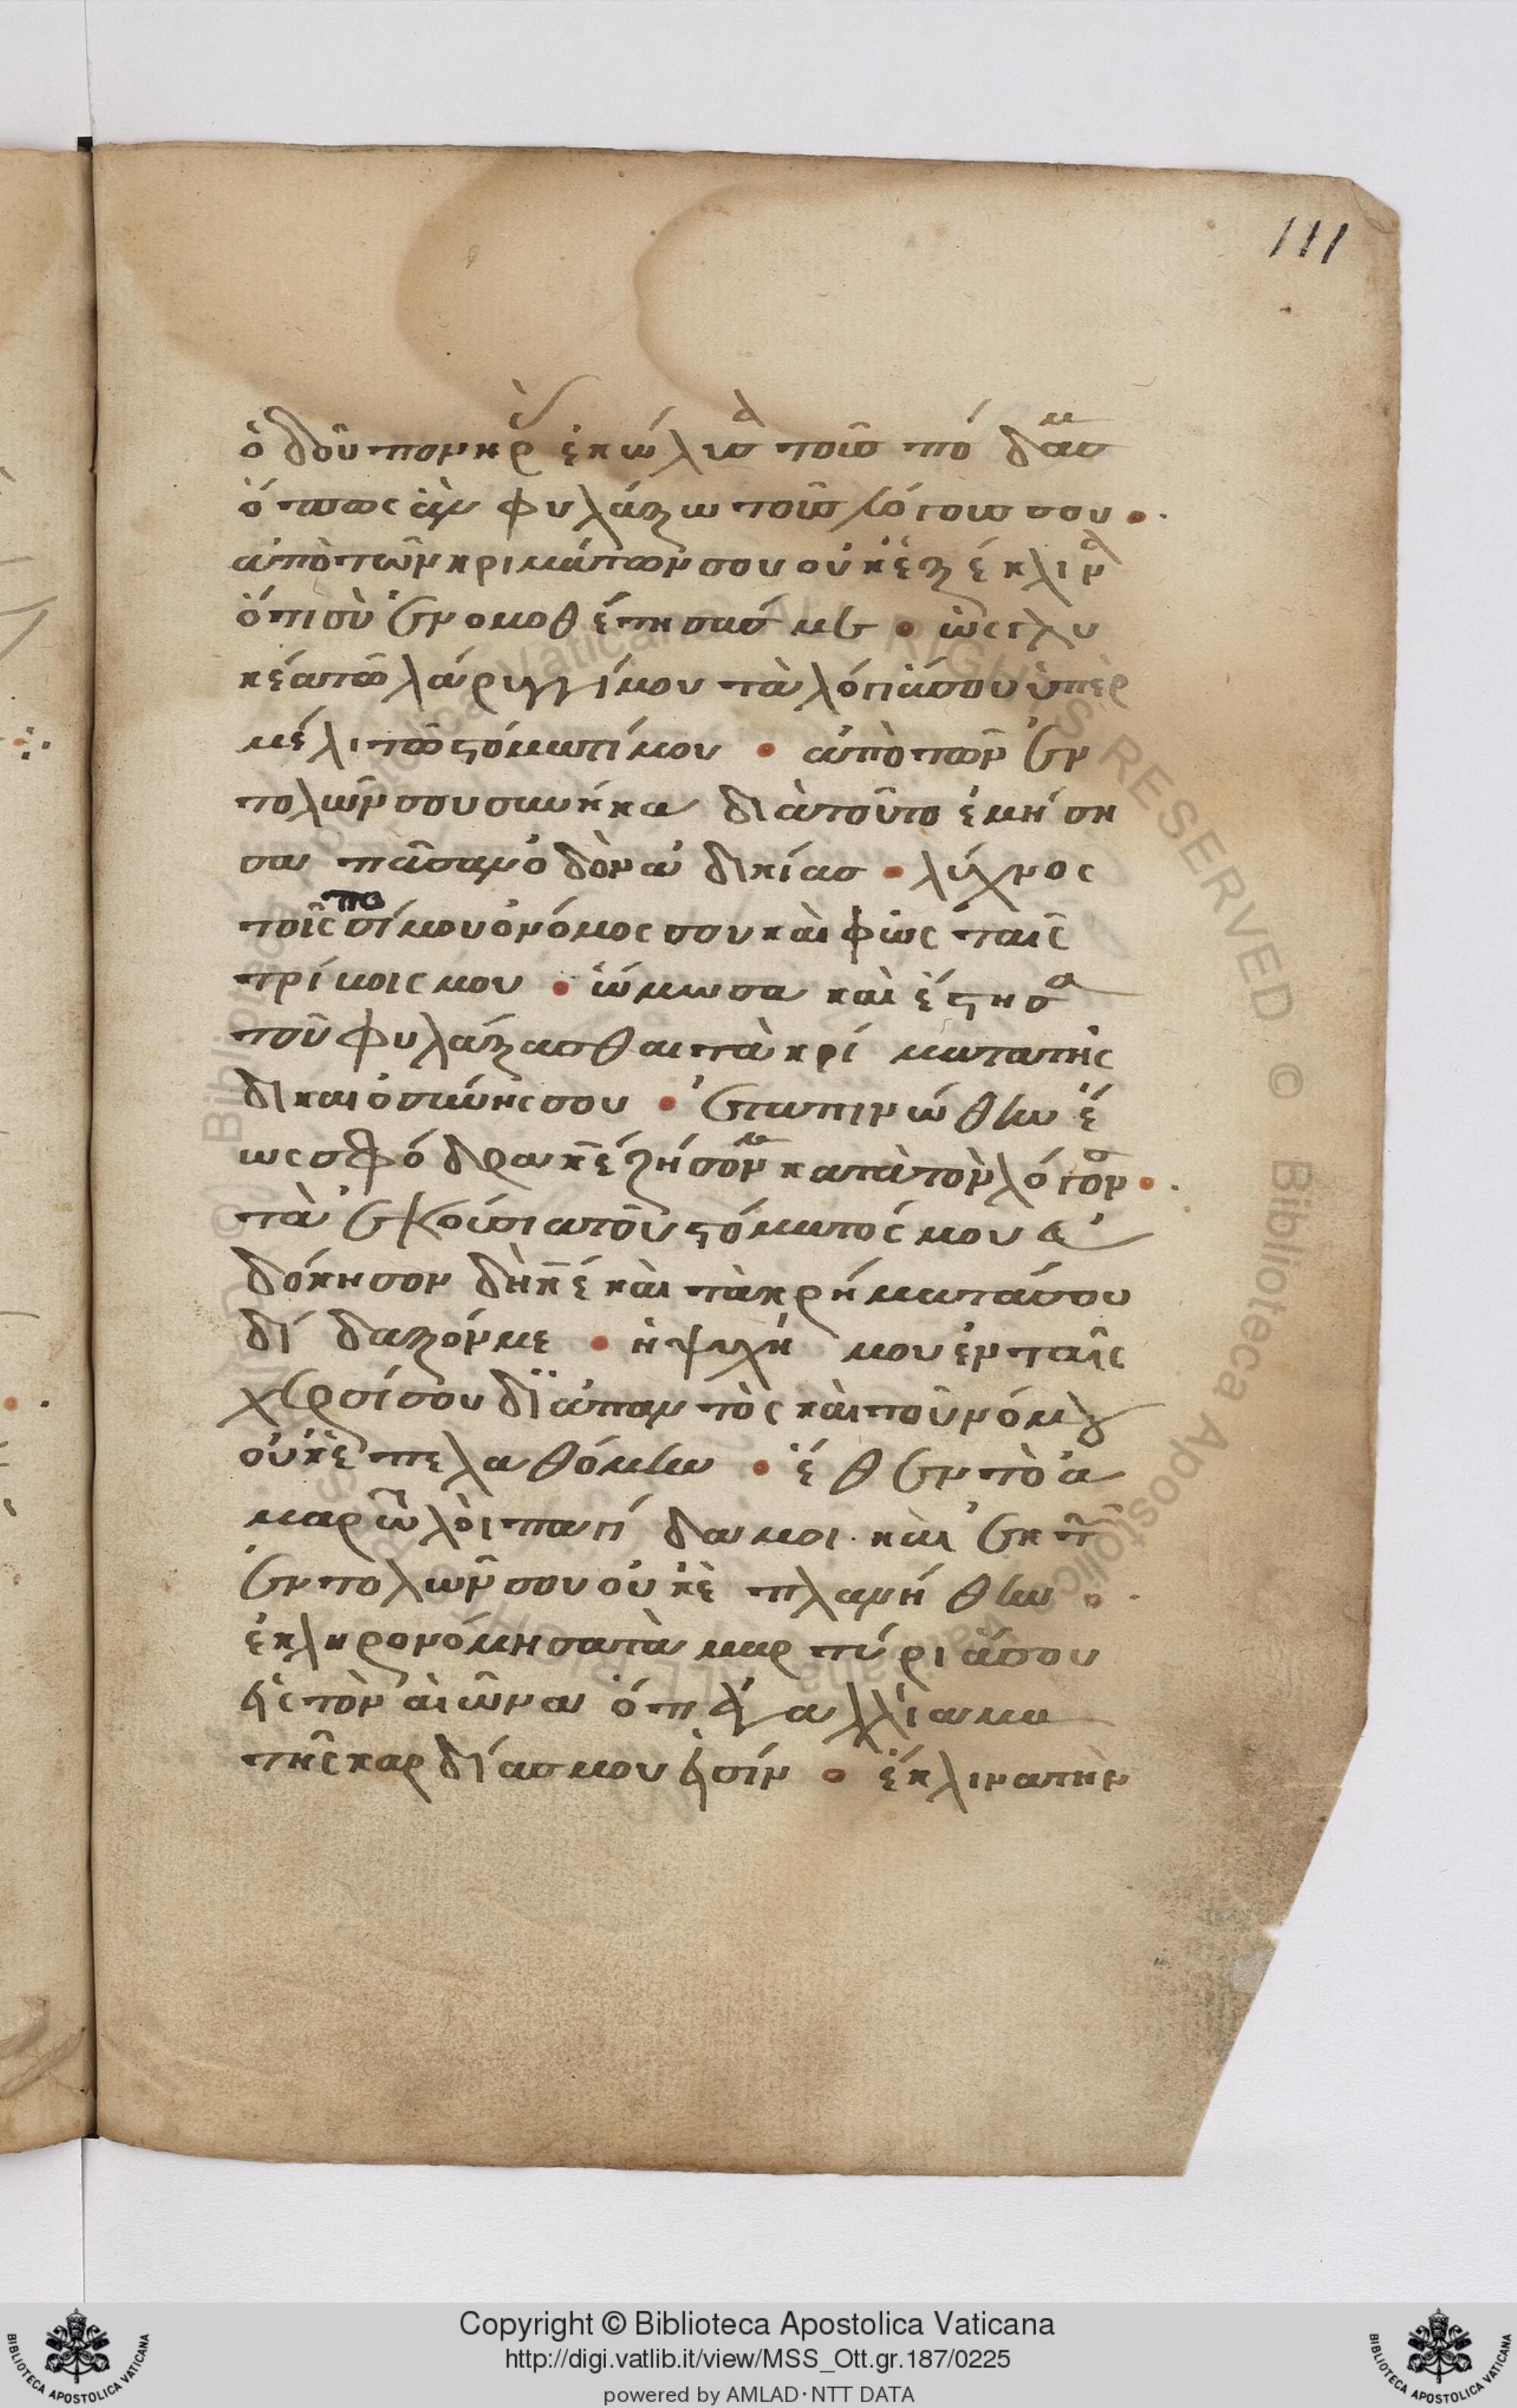 111
ὁδοῦ πονηρ(ᾶς) ἐκώλυσα τοὺς πόδας μ(ου)
ὅπως ἂν φυλάξω τοὺς λόγους σου.
ἀπὸ τῶν κριμάτων σου οὐκ ἐξέκλινα
ὅτι σὺ ἐνομοθέτησάς με. ὡς γλυ
κέα τῶ λάρυγγί μου τὰ λόγιά σου ὑπὲρ
μέλι τῶ στόματί μου. ἀπὸ τῶν ἐν
τολῶν σου συνήκα διὰ τοῦτο ἐμήση
σα πᾶσαν ὁδὸν ἀδικίας. λύχνος
τοῖς ποσί μου ὁ νόμος σου καὶ φῶς ταῖς
τρίβοις μου. ὤμωσα καὶ ἔστησα
τοῦ φυλάξασθαι τὰ κρίματα τῆς
δικαιοσύνης σου. ἐταπινώθην ἕ
ως σφόδρα κ̅ε̅ ζήσόν με κατὰ τὸν λόγον σ(ου).
τὰ ἑκούσια τοῦ στόματός μου εὐ
δόκησον δὴ κ̅ε̅ καὶ τὰ κρήματά σου
δίδαξόν με. ἡ ψυχή μου ἐν ταῖς
χερσί σου διαπαντὸς καὶ τοῦ νόμου
οὐκ ἐπελαθόμην. ἔθεντο ἁ
μαρτωλοὶ παγίδα μοι. καὶ ἐκ τῶν
ἐντολῶν σου οὐκ ἐπλανήθην.
ἐκληρονόμησα τὰ μαρτύριά σου
εἰς τὸν αἰῶνα ὅτι ἀγαλλίαμα
τῆς καρδίας μου εἰσίν. ἔκλινα τὴν
Copyright © Biblioteca Apostolica Vaticana
http://digi.vatlib.it/view/MSS_Ott.gr.187/0225
powered by AMLAD·NTT DATA